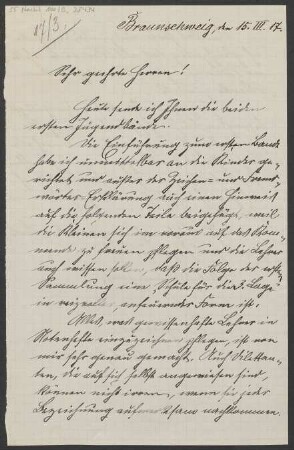 17/3.
Braunschweig, den 15. III. 17.
Sehr geehrte Herren!
Heute sende ich Ihnen die beiden
ersten Jugendbände.
Die Einführung zum ersten Bande
habe ich unmittelbar an die Kinder ge-
richtet und außer der Zeichen- und Fremd-
wörter-Erklärung auch einen Hinweis
auf die folgenden Teile beigefügt, weil
die Kleinen sich im voraus auf das Kom-
mende zu freuen pflegen und die Lehrer
auch wissen sollen, daß die Folge der ersten
Sammlung eine Schule für die Lage
in reizvoller, anführender Form ist.
Alles, was gewissenhafte Lehrer in
Notenhefte einzuzeichnen pflegen, ist von
mir sehr genau gemacht. Auch Dilettan-
ten, die auf sich selbst angewiesen sind,
können nicht irren, wenn sie jeder
Bezeichnung aufmerksam nachkommen.